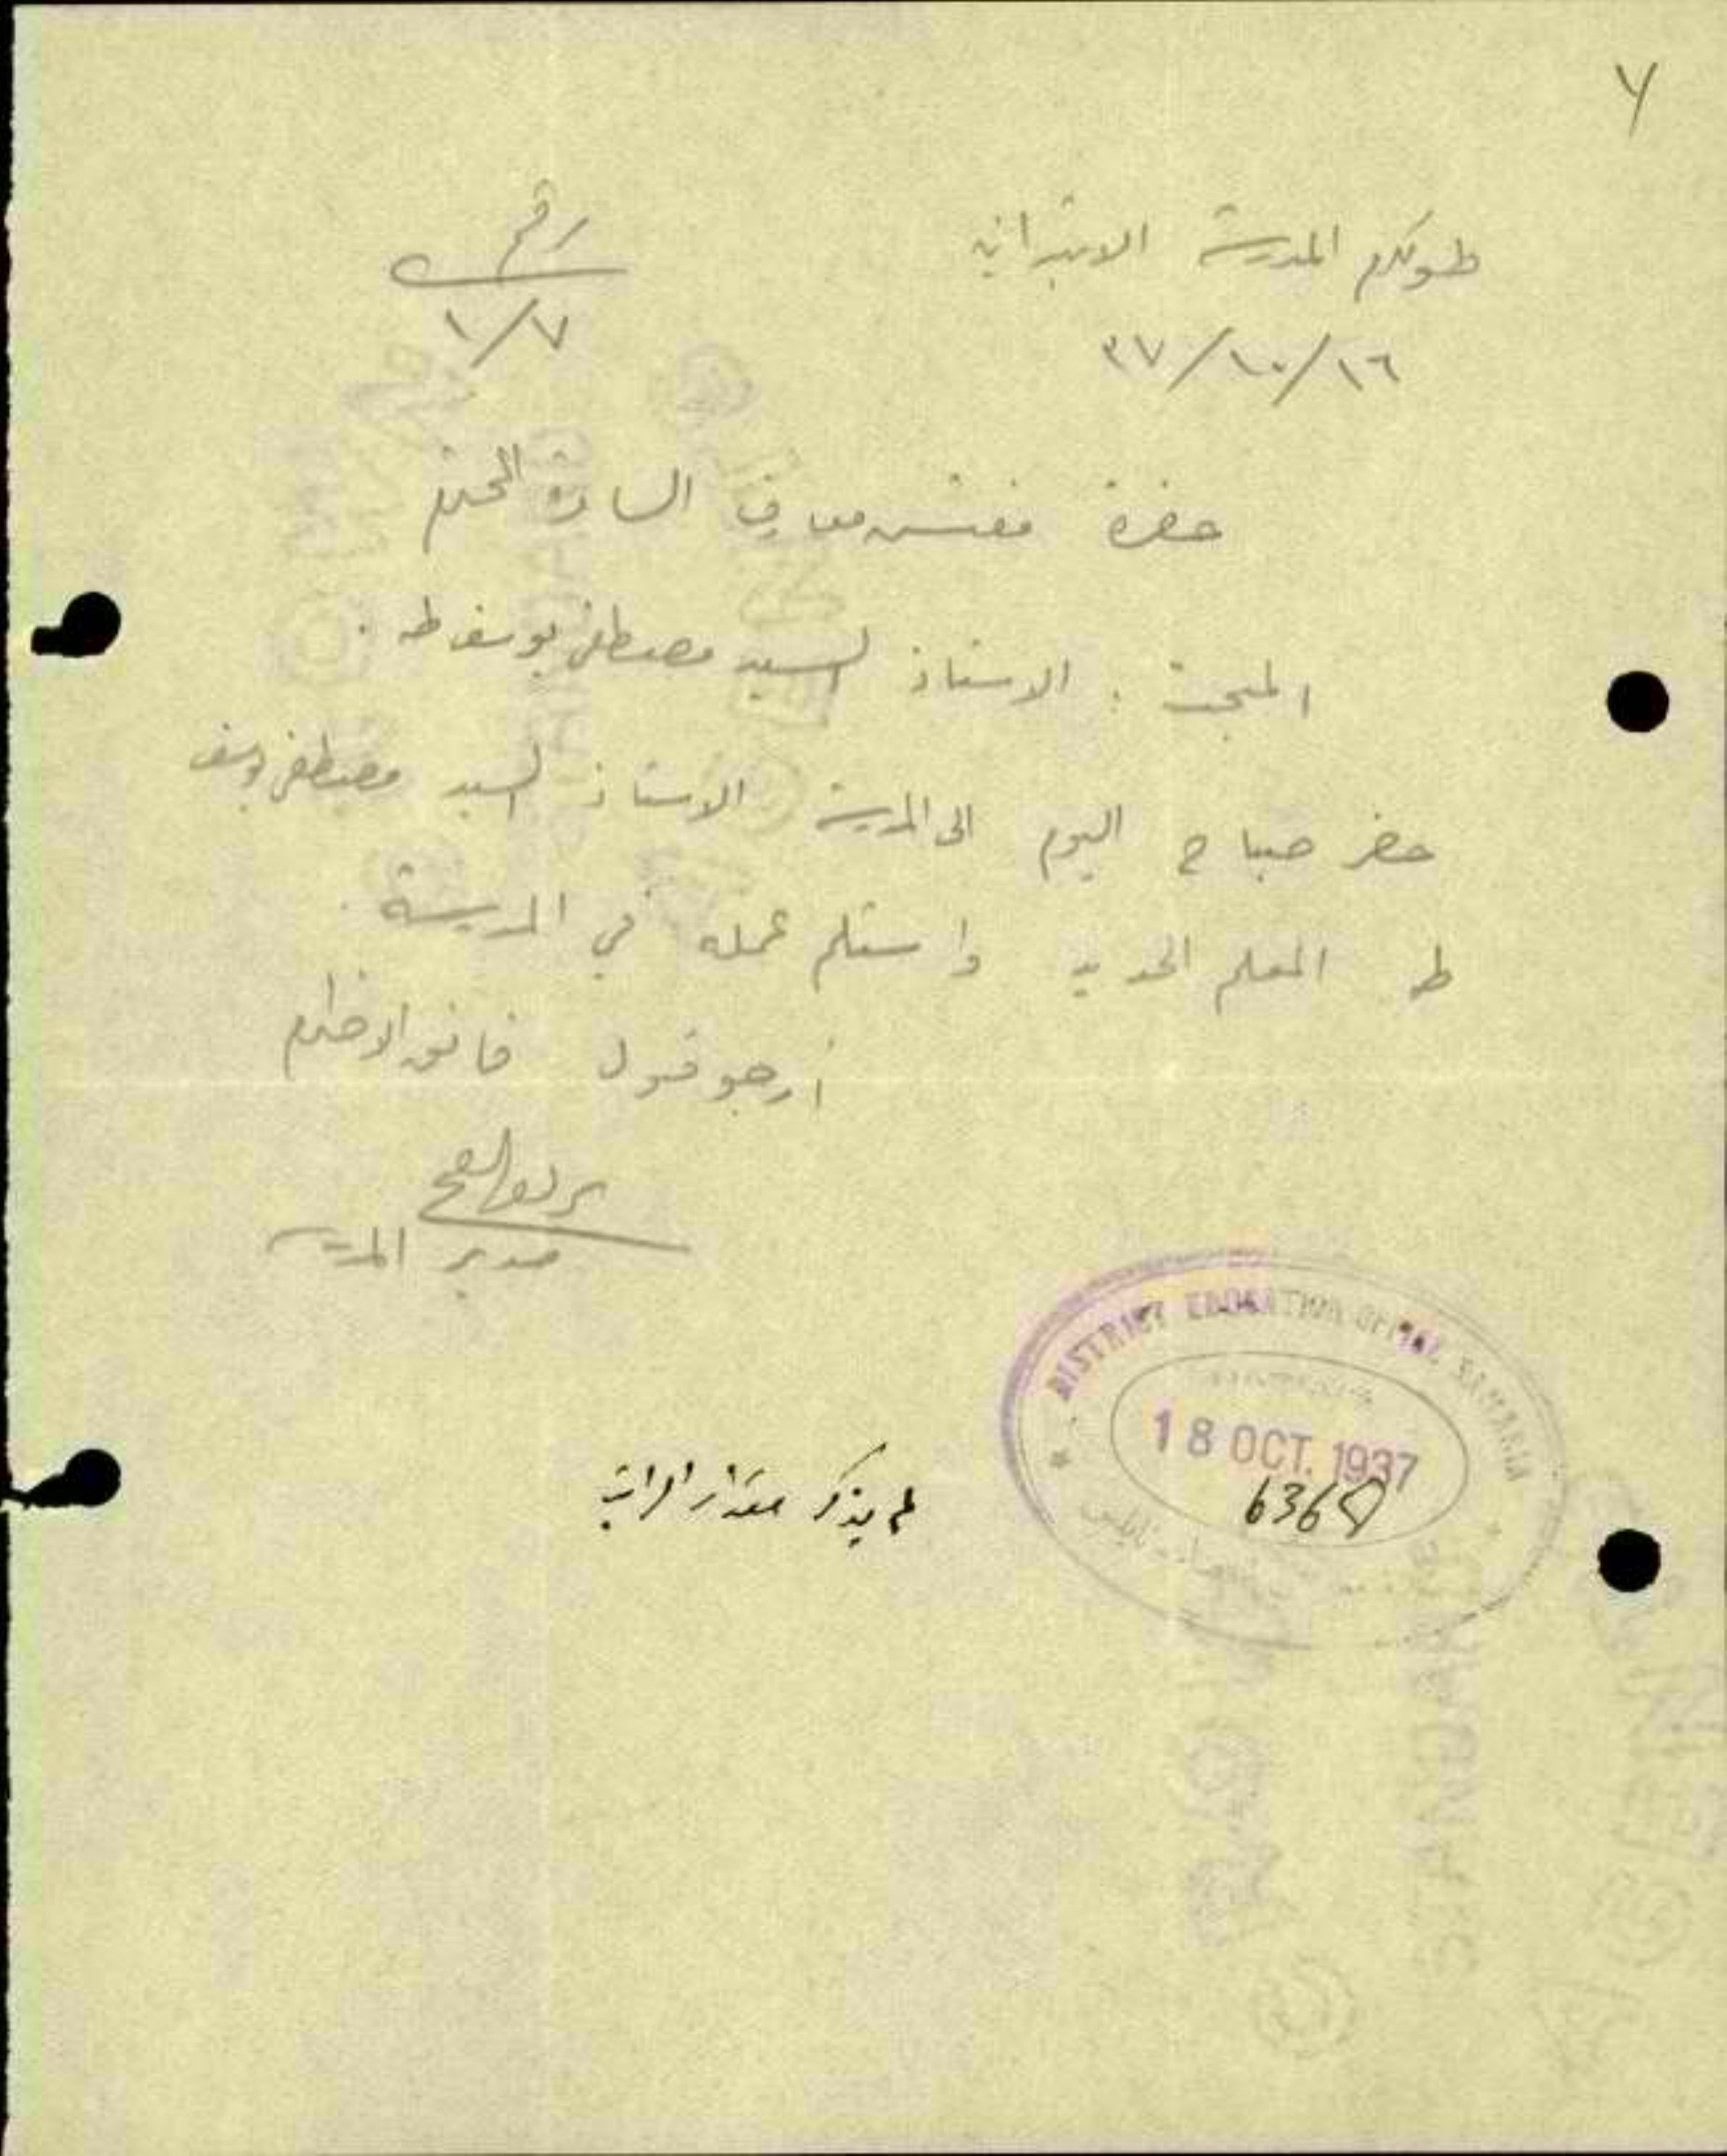 ٧
طولكرم المدرسة الابتدائية
رقم
١/٧
٣٧/١٠/١٦
حضرة مفتش معارف السامرة المحترم
المبحث : الاستاذ السيد مصطفى يوسف طه .
حضر صباح اليوم الى المدرسة الاستاذ السيد مصطفى يوسف
طه المعلم الجديد واستلم عمله في المدرسة .
أرجو قبول فائق الاحترام
مدير المدرسة
DISTRICT EDUCATION OFFICE SAMARIA
18 OCT. 1937
6368
لم يذكر مقدار الراتب